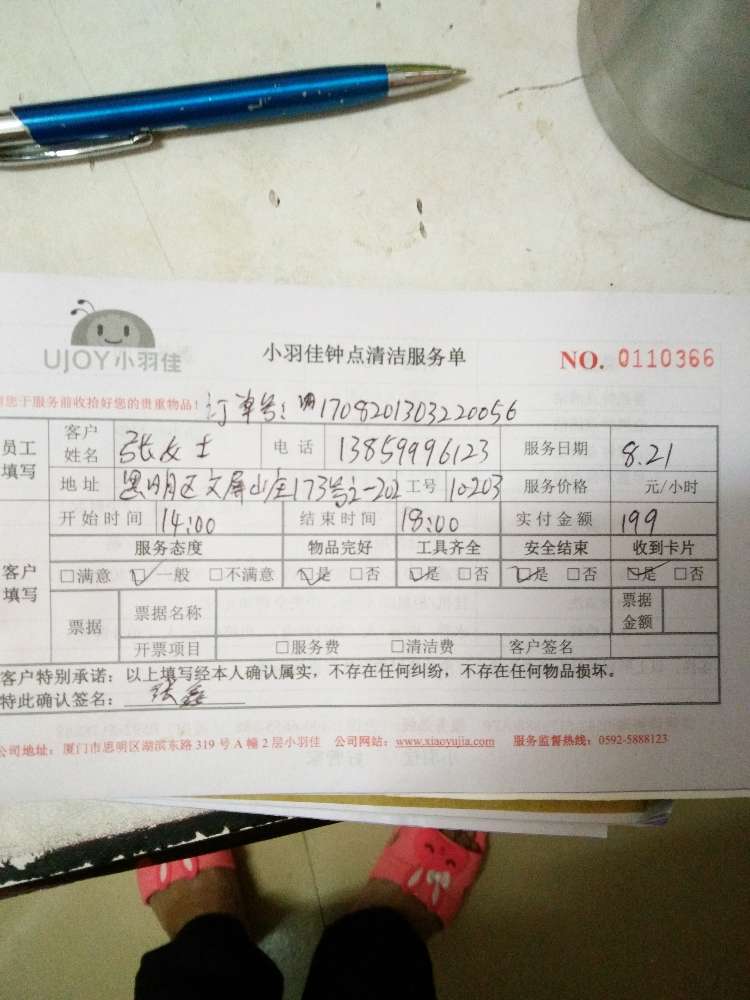 UJOY小羽佳
小羽佳钟点清洁服务单
NO. 0110366
您于服务前收拾好您的贵重物品! 订单号: 1708201303220056
员工填写 客户姓名 张女士 电话 13859996123 服务日期 8.21
地址 思明区文屏山庄173号之-202 工号 10203 服务价格 元/小时
开始时间 14:00 结束时间 18:00 实付金额 199
客户填写 服务态度 物品完好 工具齐全 安全结束 收到卡片
□满意 ☑一般 □不满意 ☑是 □否 ☑是 □否 ☑是 □否 ☑是 □否
票据 票据名称 票据金额
开票项目 □服务费 □清洁费 客户签名
客户特别承诺:以上填写经本人确认属实,不存在任何纠纷,不存在任何物品损坏。
特此确认签名: 张鑫
公司地址:厦门市思明区湖滨东路 319 号 A 幢 2 层小羽佳 公司网站:www.xiaoyujia.com 服务监督热线:0592-5888123